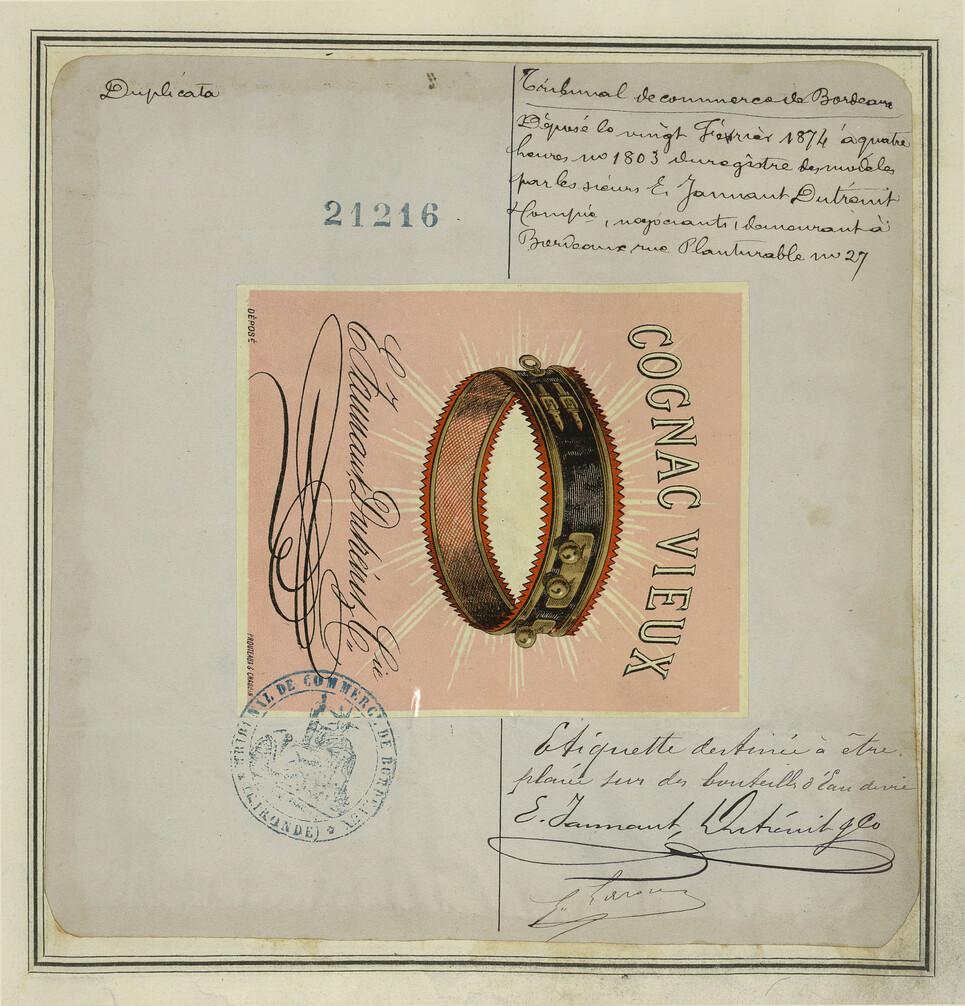 Duplicata
Tribunal de commerce de Bordeaux
Déposé le vingt Février 1874 à quatre
heures no 1803 du registre des modèles
par les sieurs E. Jannaut Dutrénit
Compie, négociants, demeurant à
Bordeaux rue Planturable no 27
21216
COGNAC VIEUX
E. Jannaut, Dutrénit & Cie
DÉPOSÉ
TRIBUNAL DE COMMERCE DE BORDEAUX
(GIRONDE)
Etiquette destinée à être
placée sur des bouteilles d'Eau de vie
E. Jannaut, Dutrénit & Co